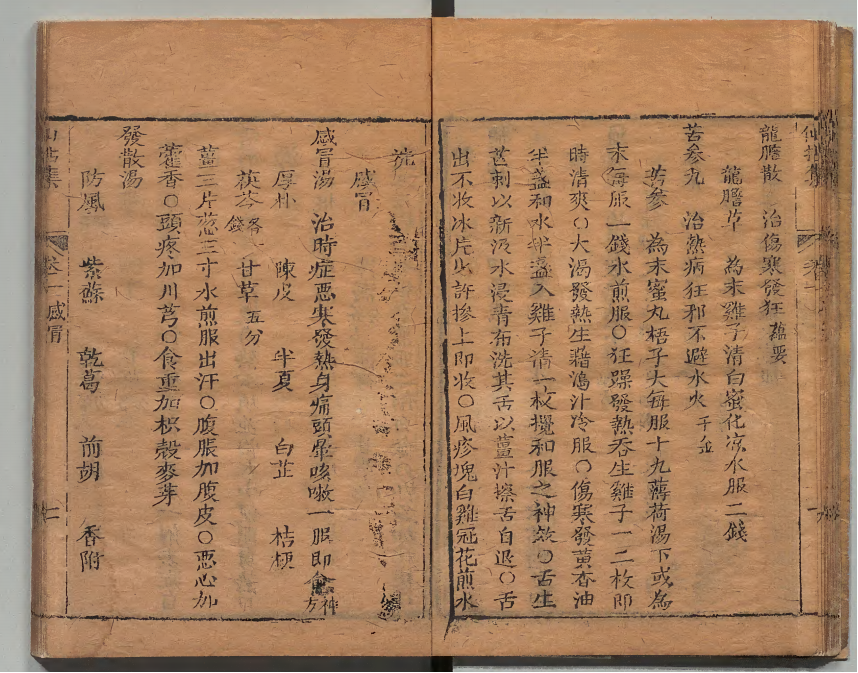 龍膽散　治傷寒發狂 蘊要
龍膽草　為末雞子清白蜜化凉水服二錢
苦參丸　治熱病狂邪不避水火 千金
苦參　為末蜜丸梧子大每服十丸薄荷湯下或為
末每服一錢水煎服〇狂躁發熱吞生雞子一二枚即
時清爽〇大渴發熱生藕搗汁冷服〇傷寒發黃香油
半盞和水半盞入雞子清一枚攪和服之神效〇舌生
芒刺以新汲水浸青布洗其舌以薑汁擦舌自退〇舌
出不收冰片少許摻上即收〇風疹塊白雞冠花煎水
洗
感冒
感冒湯　治時症惡寒發熱身痛頭暈咳嗽一服即 神方
厚朴　陳皮　半夏　白芷　桔梗
茯苓 各一錢　甘草 五分
薑三片葱三寸水煎服出汗〇腹脹加腹皮〇惡心加
藿香〇頭疼加川芎〇食重加枳殼麥芽
發散湯
防風　紫蘇　乾葛　前胡　香附
卷一 感冒